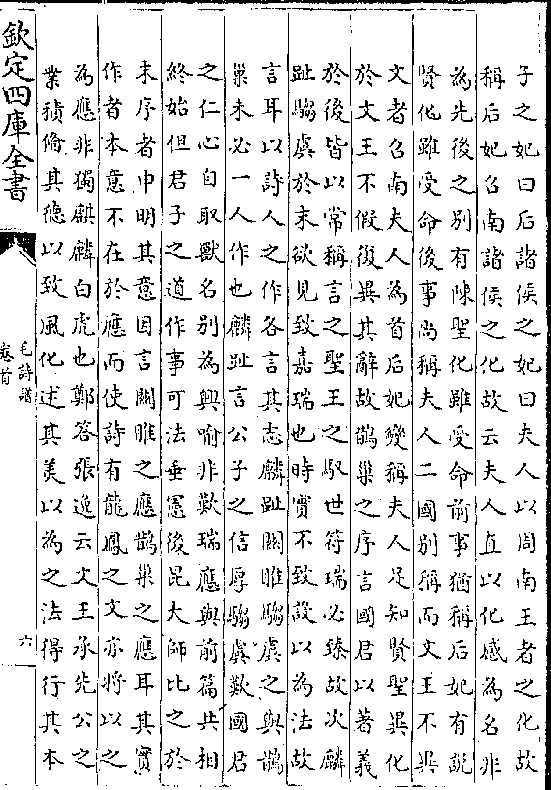 子之妃曰后諸侯之妃曰夫人以周南王者之化故
稱后妃召南諸侯之化故云夫人直以化感為名非
為先後之別有陳聖化雖受命前事猶稱后妃有說
賢化雖受命後事尚稱夫人二國別稱而文王不異
文者召南夫人為首后妃變稱夫人足知賢聖異化
於文王不假復異其辭故鵲巢之序言國君以著義
於後皆以常稱言之聖王之馭世符瑞必臻故次麟
趾騶虞於末欲見致嘉瑞也時實不致設以為法故
言耳以詩人之作各言其志麟趾關雎騶虞之與鵲
巢未必一人作也麟趾言公子之信厚騶虞歎國君
之仁心自取獸名別為興喻非歎瑞應與前篇共相
終始但君子之道作事可法垂憲後昆大師比之於
末序者申明其意因言關雎之應鵲巢之應耳其實
作者本意不在於應而使詩有龍鳳之文亦將以之
為應非獨麒麟白虎也鄭答張逸云文王承先公之
業積脩其德以致風化述其美以為之法得行其本
欽定四庫全書
毛詩譜
卷首
六